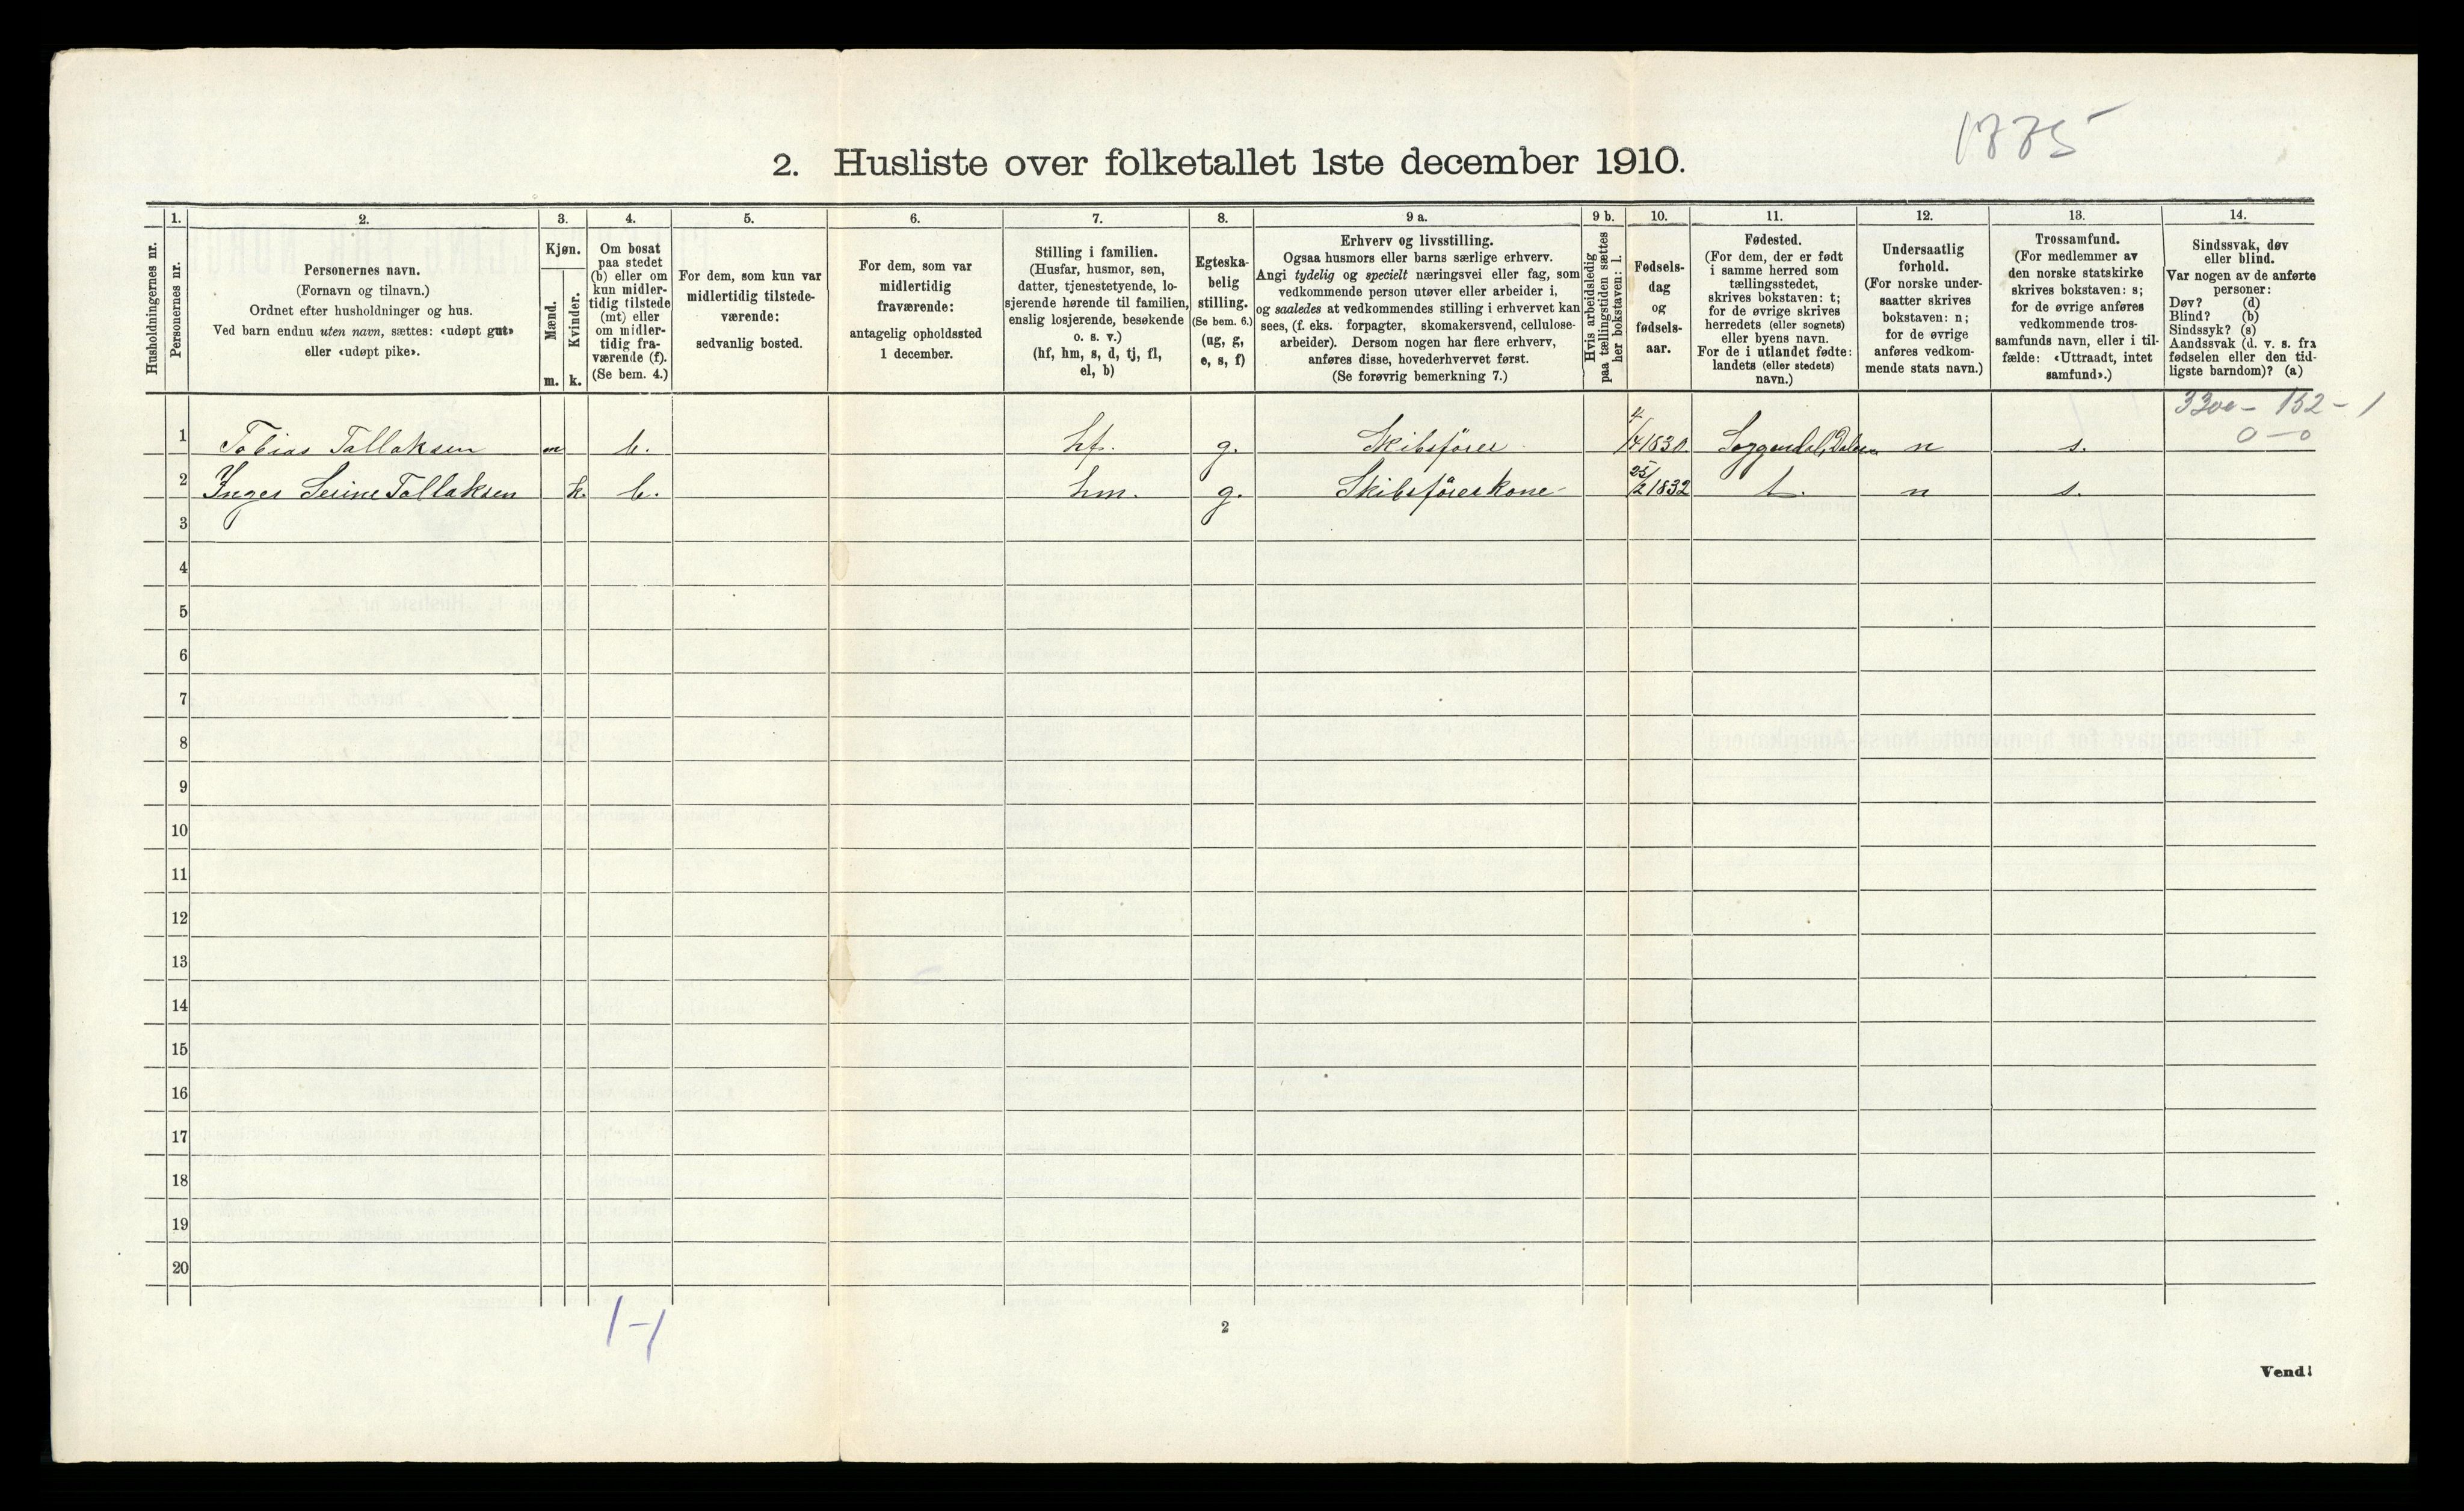 1885
2. Husliste over folketallet 1ste december 1910.
Husholdningernes nr.
1.
Personernes nr.
2.
Personernes navn.
(Fornavn og tilnavn.)
Ordnet efter husholdninger og hus.
Ved barn endnu uten navn, sættes: «udøpt gut»
eller «udøpt pike».
3.
Kjøn.
Mænd.
m.
Kvinder.
k.
4.
Om bosat
paa stedet
(b) eller om
kun midler-
tidig tilstede
(mt) eller
om midler-
tidig fra-
værende (f).
(Se bem. 4.)
5.
For dem, som kun var
midlertidig tilstede-
værende:
sedvanlig bosted.
6.
For dem, som var
midlertidig
fraværende:
antagelig opholdssted
1 december.
7.
Stilling i familien.
(Husfar, husmor, søn,
datter, tjenestetyende, lo-
sjerende hørende til familien,
enslig losjerende, besøkende
o. s. v.)
(hf, hm, s, d, tj, fl,
el, b)
8.
Egteska-
belig
stilling.
(Se bem. 6.)
(ug, g,
e, s, f)
9 a.
Erhverv og livsstilling.
Ogsaa husmors eller barns særlige erhverv.
Angi tydelig og specielt næringsvei eller fag, som
vedkommende person utøver eller arbeider i,
og saaledes at vedkommendes stilling i erhvervet kan
sees, (f. eks. forpagter, skomakersvend, cellulose-
arbeider). Dersom nogen har flere erhverv,
anføres disse, hovederhvervet først.
(Se forøvrig bemerkning 7.)
9 b.
Hvis arbeidsledig
paa tællingstiden sættes
her bokstaven: l.
10.
Fødsels-
dag
og
fødsels-
aar.
11.
Fødested.
(For dem, der er født
i samme herred som
tællingsstedet,
skrives bokstaven: t;
for de øvrige skrives
herredets (eller sognets)
eller byens navn.
For de i utlandet fødte:
landets (eller stedets)
navn.)
12.
Undersaatlig
forhold.
(For norske under-
saatter skrives
bokstaven: n;
for de øvrige
anføres vedkom-
mende stats navn.)
13.
Trossamfund.
(For medlemmer av
den norske statskirke
skrives bokstaven: s;
for de øvrige anføres
vedkommende tros-
samfunds navn, eller i til-
fælde: «Uttraadt, intet
samfund».)
14.
Sindssvak, døv
eller blind.
Var nogen av de anførte
personer:
Døv? (d)
Blind? (b)
Sindssyk? (s)
Aandssvak (d. v. s. fra
fødselen eller den tid-
ligste barndom)? (a)
3300 - 152 - 1
0 - 0
1 Tobias Tallaksen m b. hf. g. Skibsfører 4/4 1830. Soggendal, Dalene n s.
2 Inger Serine Tallaksen k. b. hm. g. Skibsførerkone 25/2 1832 t. n s.
3
4
5
6
7
8
9
10
11
12
13
14
15
16
17
18
19
20
1-1
2
Vend!